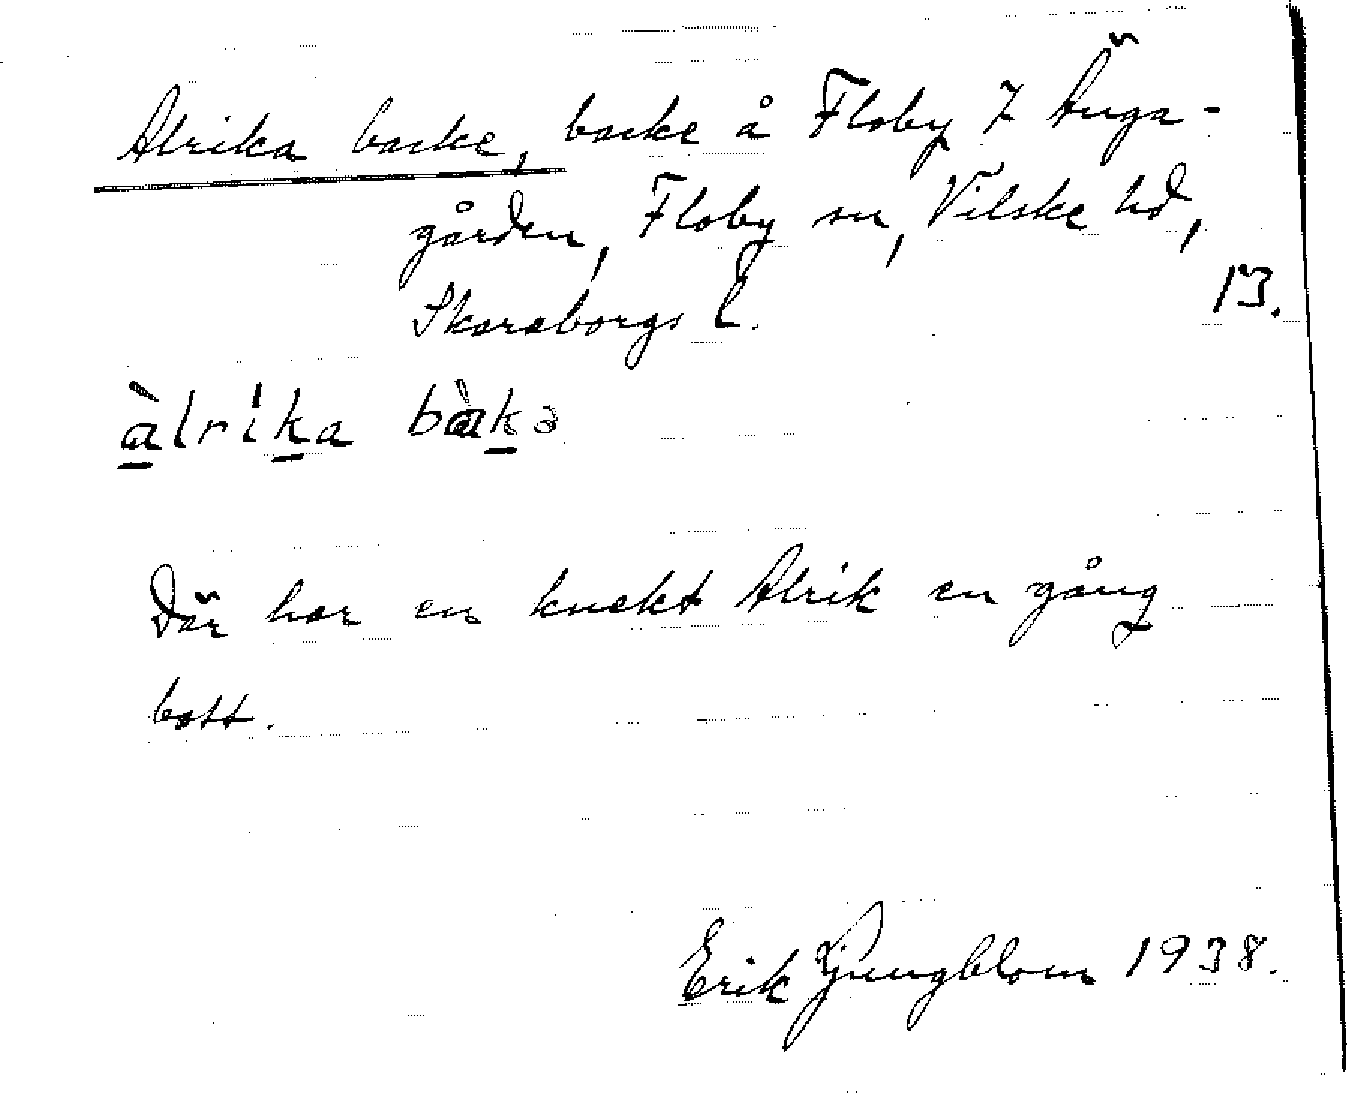 Alrika backe, backe å Floby 7 Änga-
gården, Floby sn, Vilske hd,
Skaraborgs l.
13.
àlrika bàkə
Där har en knekt Alrik en gång
bott.
Erik Ljungblom 1938.